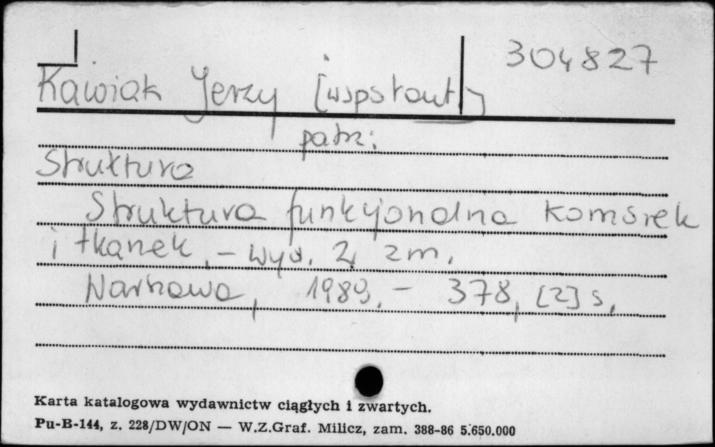 304827
Kawiak Jerzy [współaut]
patrz:
Struktura
Struktura funkcjonalna komórek
i tkanek. - Wyd. 2, zm.
Warszawa, 1989. - 378, [2] s.
Karta katalogowa wydawnictw ciągłych i zwartych.
Pu-B-144, z. 228/DW/ON — W.Z.Graf. Milicz, zam. 388-86 5.650.000